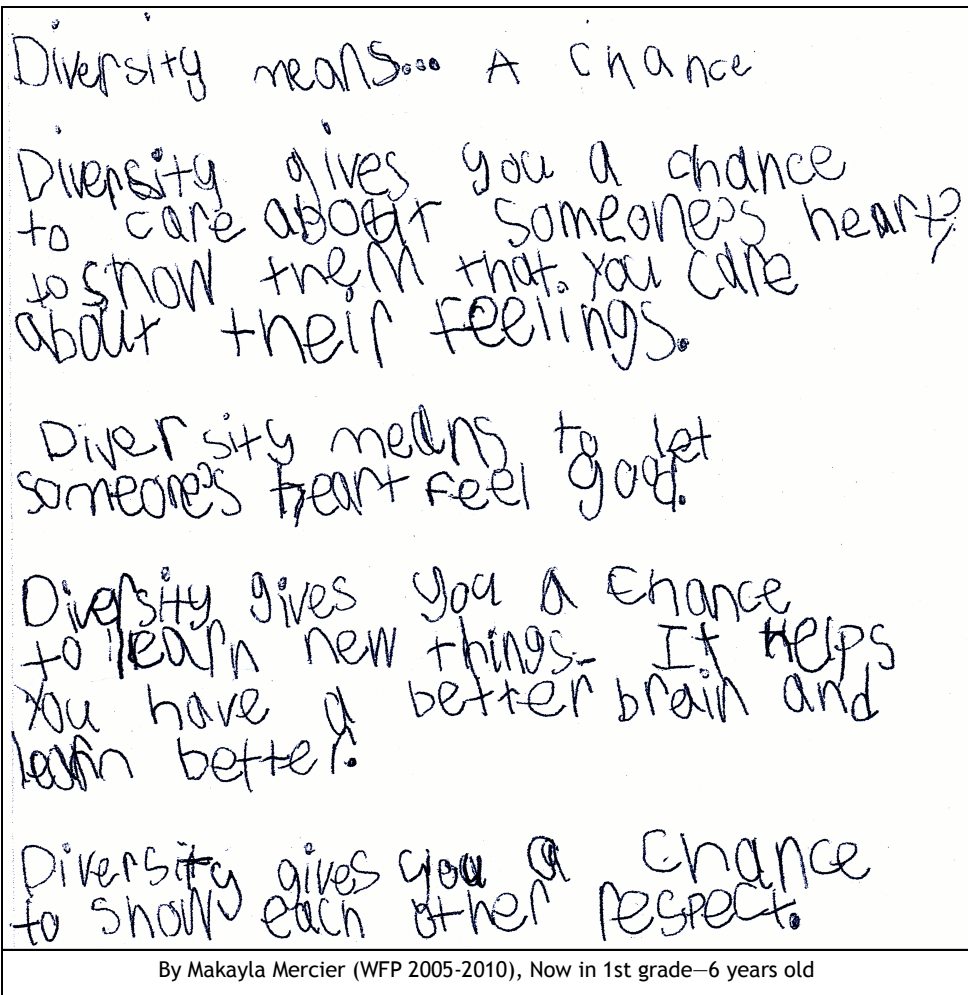 Diversity means... A chance
Diversity gives you a chance
to care about someone's heart,
to show them that you care
about their feelings.
Diversity means to let
someone's heart feel good.
Diversity gives you a chance
to learn new things. It helps
you have a better brain and
learn better.
Diversity gives you a chance
to show each other respect.
By Makayla Mercier (WFP 2005-2010), Now in 1st grade—6 years old